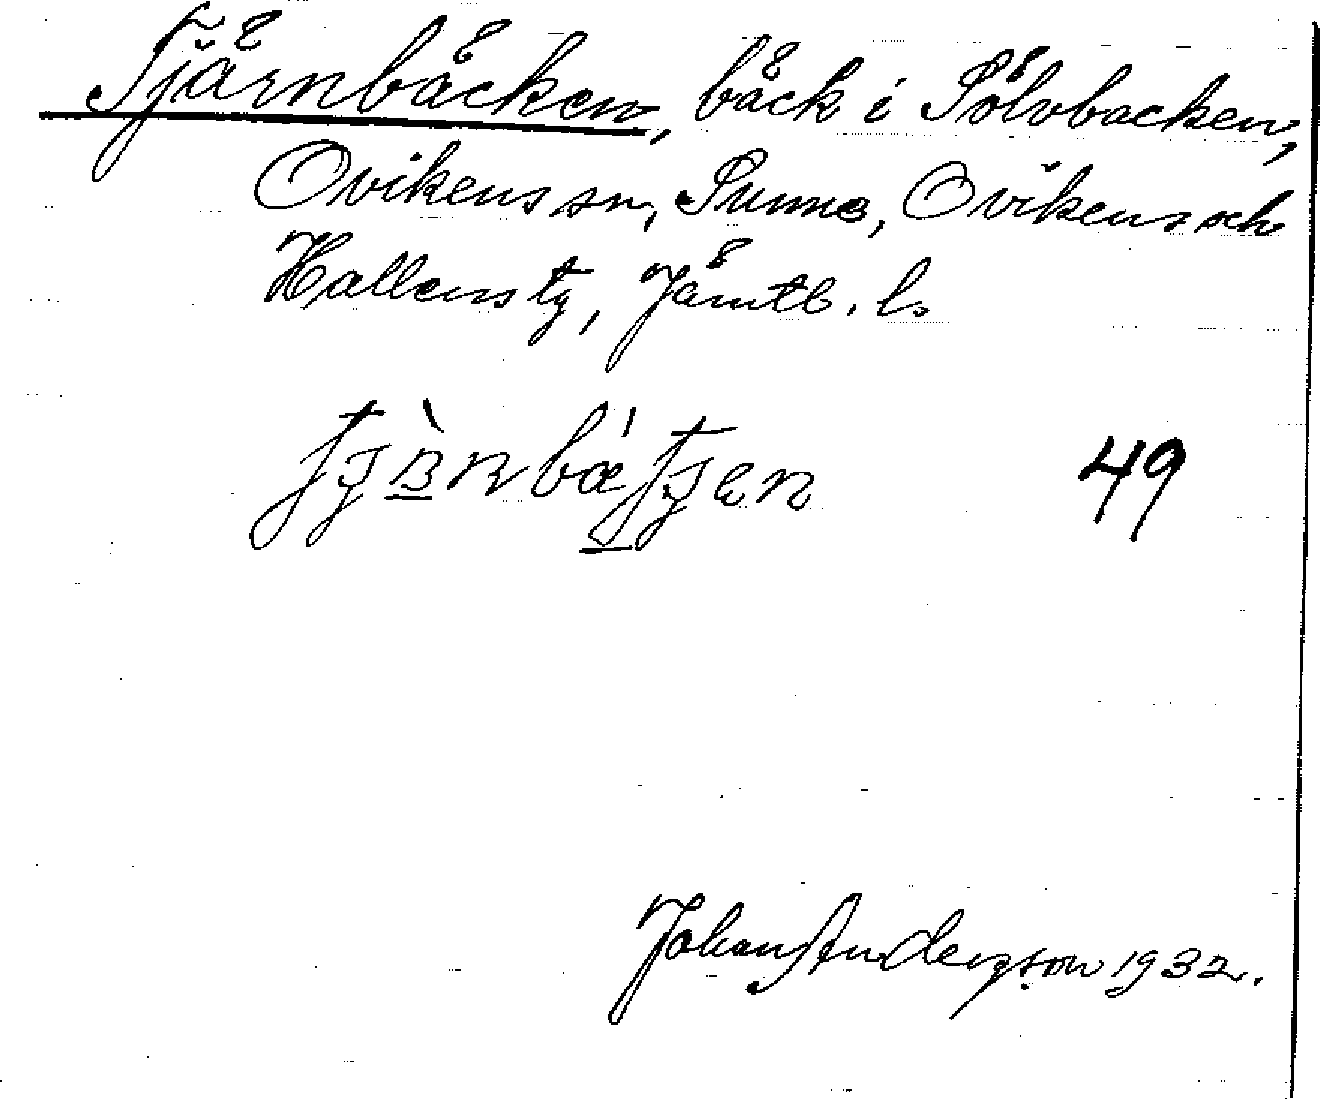 Tjärnbäcken, bäck i Sölvbacken,
Ovikens sn, Sunne, Ovikens och
Hallens tg, Jämtl. l.
49
Johan Andersson 1932.